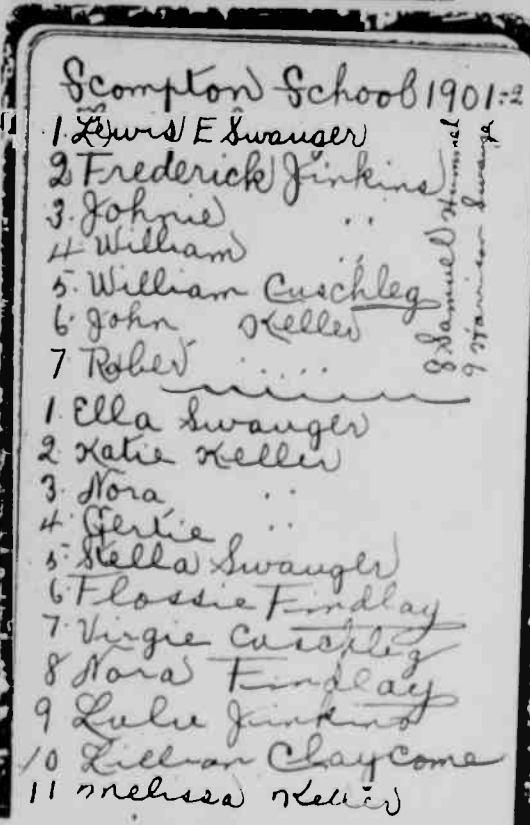 Scompton School 1901-2
1. Lewis E Swauger
2 Frederick Jinkins
3. Johnie ..
4 William ..
5. William Cuschleg
6. John Keller
7 Rober .....
8 Samuel Hummel
9 Harrison Swauger
1. Ella Swauger
2 Katie Keller
3. Nora ..
4 Gertie ..
5. Stella Swauger
6 Flossie Findlay
7. Virgie Cuschleg
8 Nora Findlay
9 Lulu Jinkins
10 Lillian Claycome
11 Melissa Keller